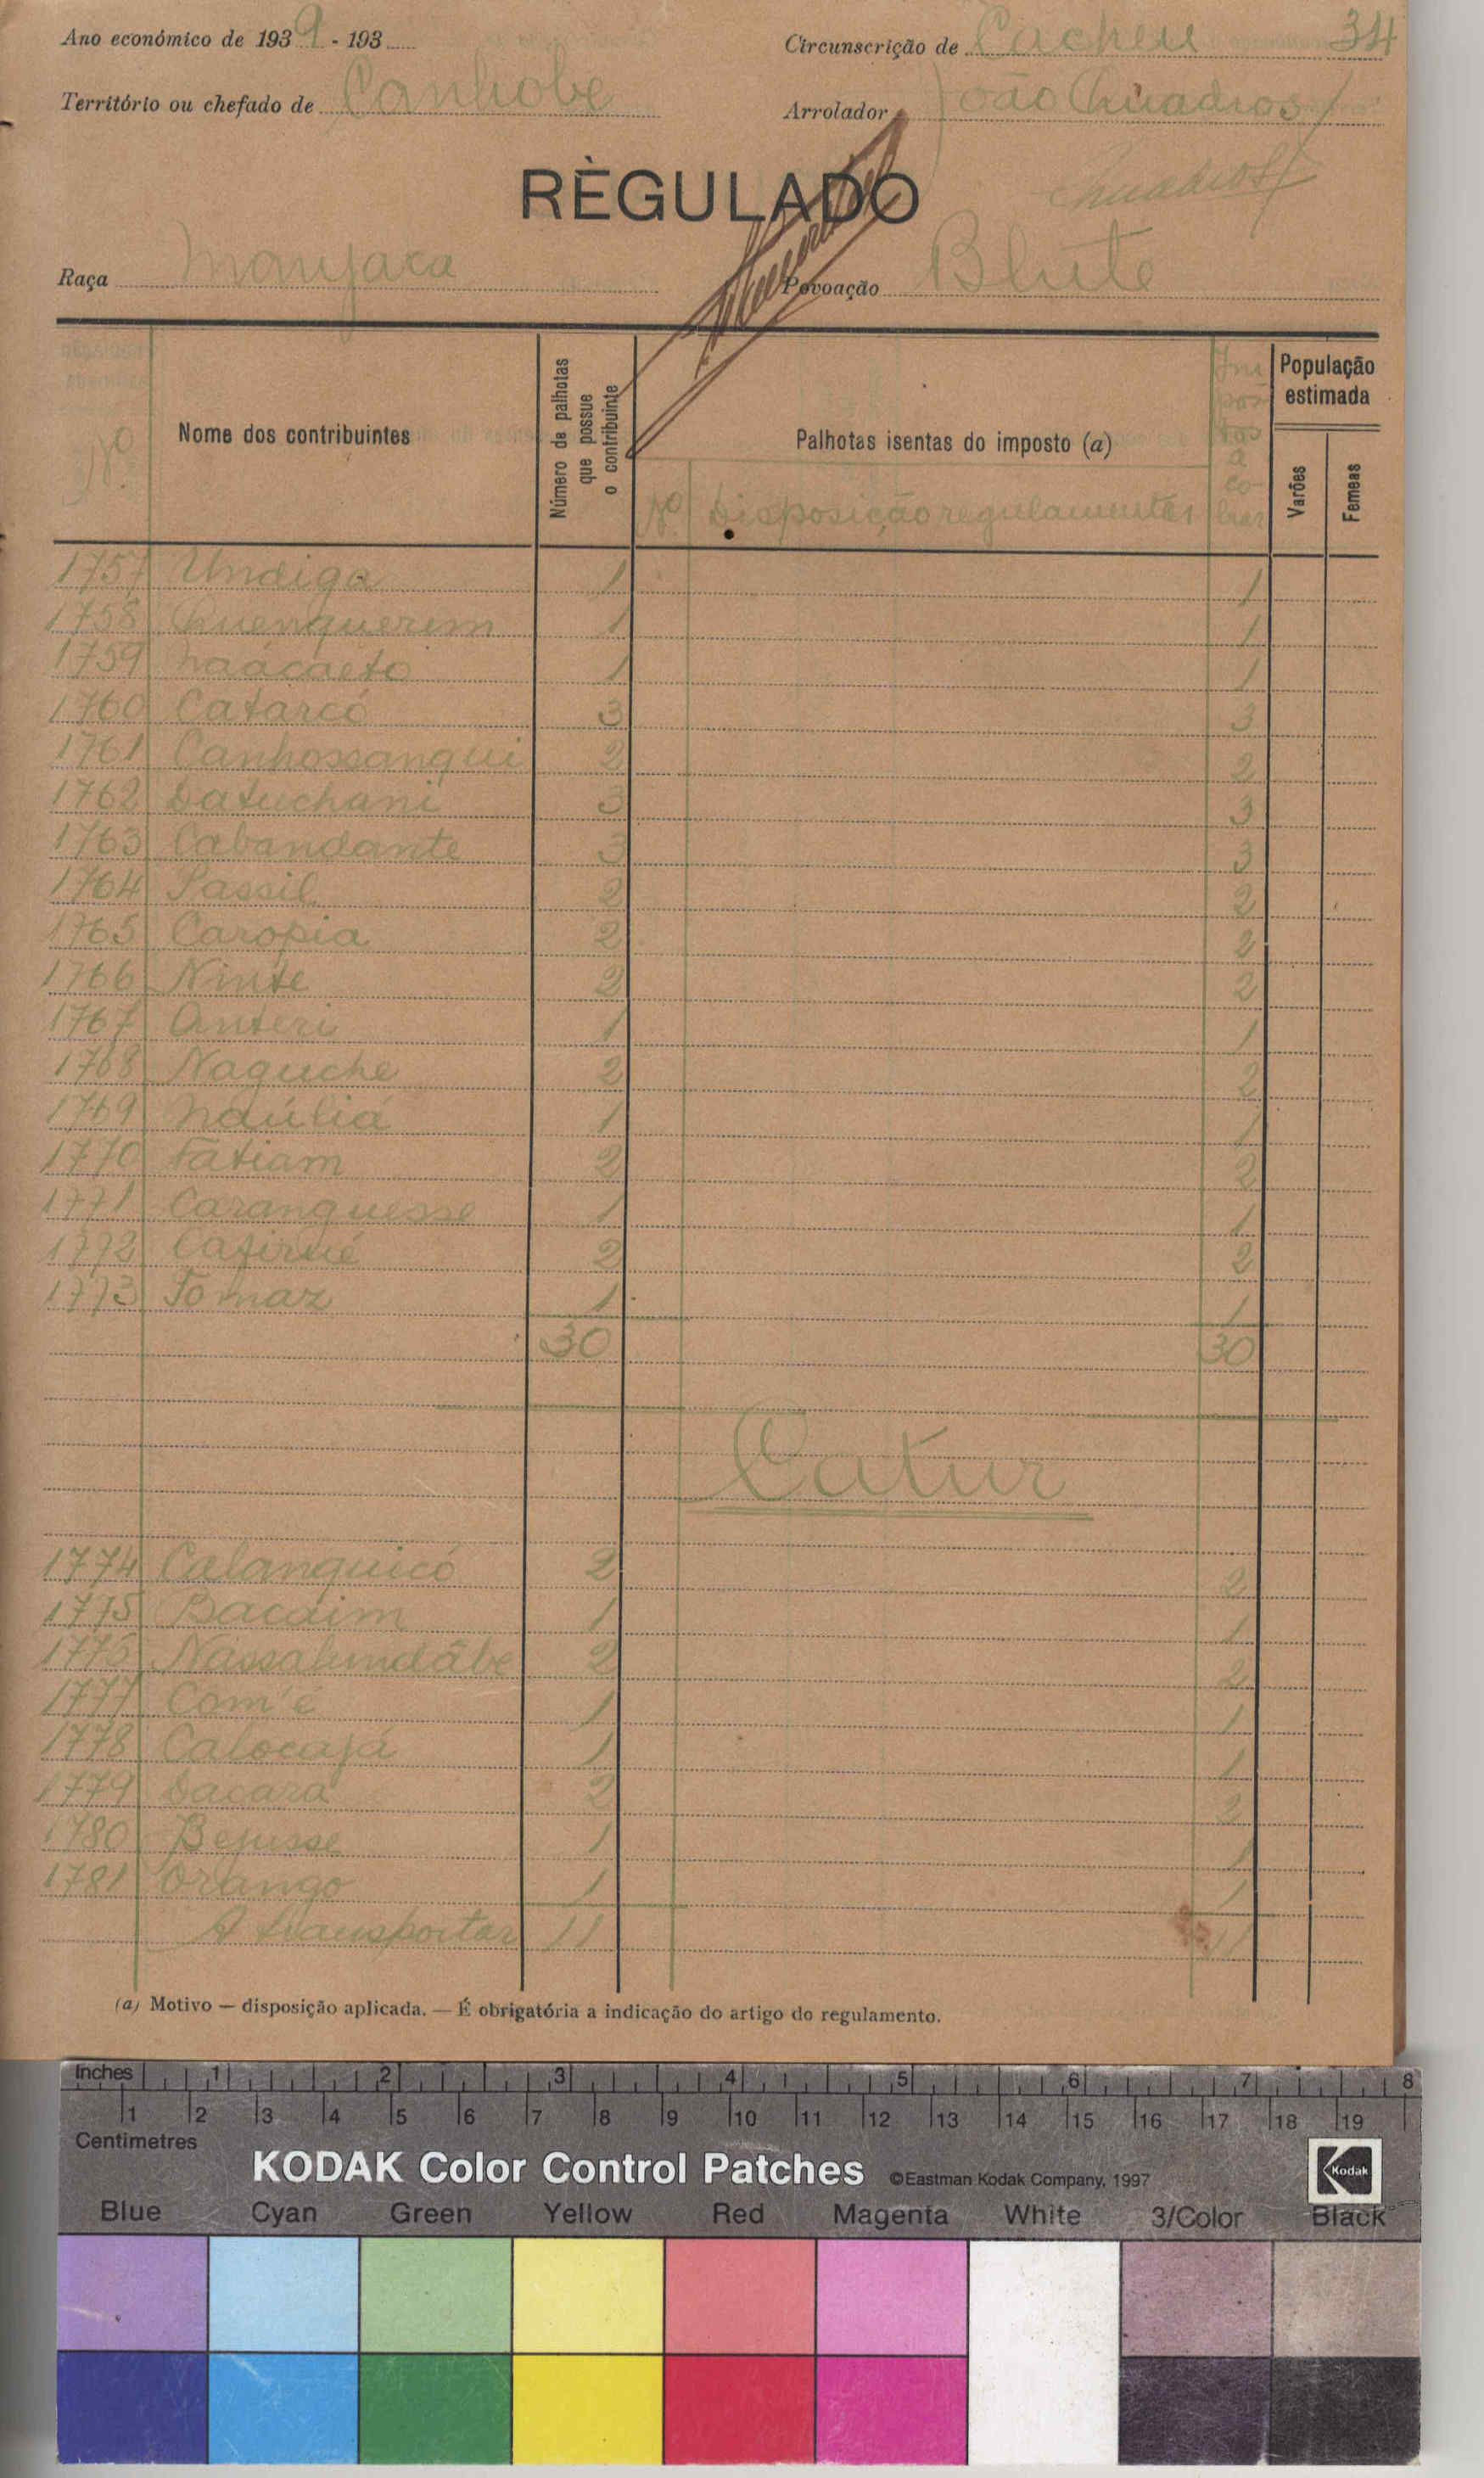 Ano económico de 1939 - 193
Circunscrição de Cacheu 34
Território ou chefado de Canhobe
Arrolador João Quadros
RÈGULADO
Quadros
Raça Manjaca
Povoação Blute
Nº
Nome dos contribuintes
Número de palhotas que possue o contribuinte
Palhotas isentas do imposto (a)
Nº Disposição regulamentar
Impostos a cobrar
População estimada
Varões
Femeas
1757 Undiga 1 1
1758 Quenquerem 1 1
1759 Naácaeto 1 1
1760 Catarcó 3 3
1761 Canhossangui 2 2
1762 Datuchani 3 3
1763 Cabandante 3 3
1764 Passil 2 2
1765 Caropia 2 2
1766 Ninte 2 2
1767 Anteri 1 1
1768 Naguche 2 2
1769 Naúliá 1 1
1770 Fatiam 2 2
1771 Caranquesse 1 1
1772 2 2
1773 Tomaz 1 1
30 30
Catur
1774 Calanquicó 2 2
1775 Bacaim 1 1
1776 Nassalundâbe 2 2
1777 Com'é 1 1
1778 Calocajá 1 1
1779 Dacara 2 2
1780 Bejusse 1 1
1781 Orango 1 1
A transportar 11 11
(a) Motivo — disposição aplicada. — É obrigatória a indicação do artigo do regulamento.
Inches 1 2 3 4 5 6 7 8
1 2 3 4 5 6 7 8 9 10 11 12 13 14 15 16 17 18 19
Centimetres
KODAK Color Control Patches ©Eastman Kodak Company, 1997 Kodak
Blue Cyan Green Yellow Red Magenta White 3/Color Black